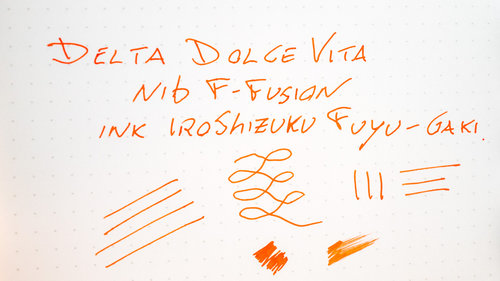 DELTA DOLCE VITA
NIB F-FUSION
INK IROSHIZUKU FUYU-GAKI